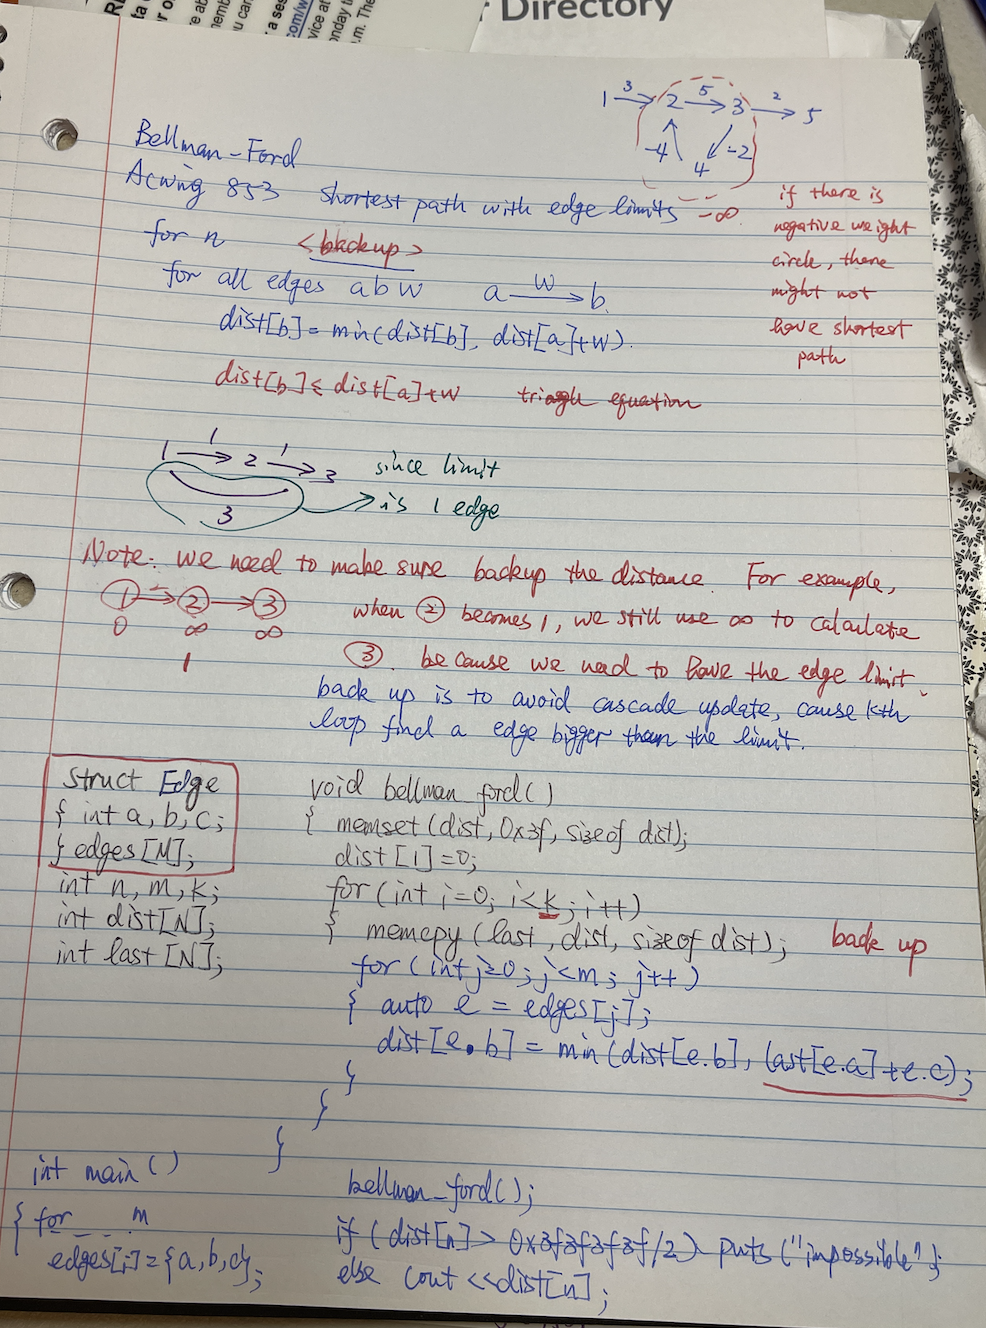 Directory
1 3 2 5 3 2 5
-4 4 -2
Bellman-Ford
Acwing 853 shortest path with edge limits -∞
if there is
negative weight
circle, there
might not
have shortest
path
for n <backup>
for all edges a b w a w b
dist[b] = min(dist[b], dist[a]+w).
dist[b] ≤ dist[a]+w triangle equation
1 1 2 1 3
3
since limit
is 1 edge
Note: we need to make sure backup the distance. For example,
1 2 3
0 ∞ ∞
1
when ② becomes 1, we still use ∞ to calculate
③. because we need to have the edge limit.
back up is to avoid cascade update, cause kth
loop find a edge bigger than the limit.
struct Edge
{ int a, b, c;
} edges[M];
int n, m, k;
int dist[N];
int last[N];
void bellman_ford()
{ memset(dist, 0x3f, sizeof dist);
dist[1]=0;
for(int i=0; i<k; i++)
{ memcpy(last, dist, sizeof dist); back up
for(int j=0; j<m; j++)
{ auto e = edges[j];
dist[e.b] = min(dist[e.b], last[e.a]+e.c);
}
}
}
int main()
{ for m
edges[i]={a,b,c};
bellman_ford();
if (dist[n] > 0x3f3f3f3f/2) puts("impossible");
else cout <<dist[n];